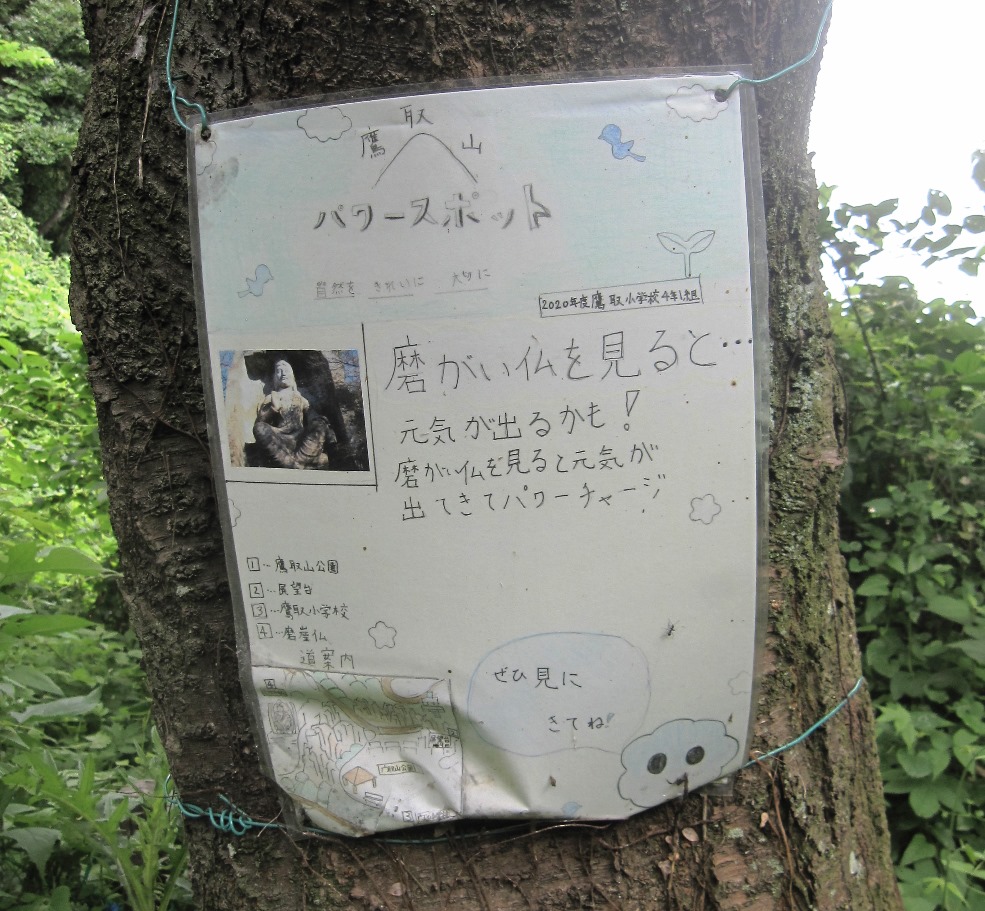 鷹取山
パワースポット
自然を きれいに 大切に
2020年度鷹取小学校4年1組
磨がい仏を見ると…
元気が出るかも!
磨がい仏を見ると元気が
出てきてパワーチャージ
1…鷹取山公園
2…展望台
3…鷹取小学校
4…磨崖仏
道案内
鷹取山公園
ぜひ見に
きてね!